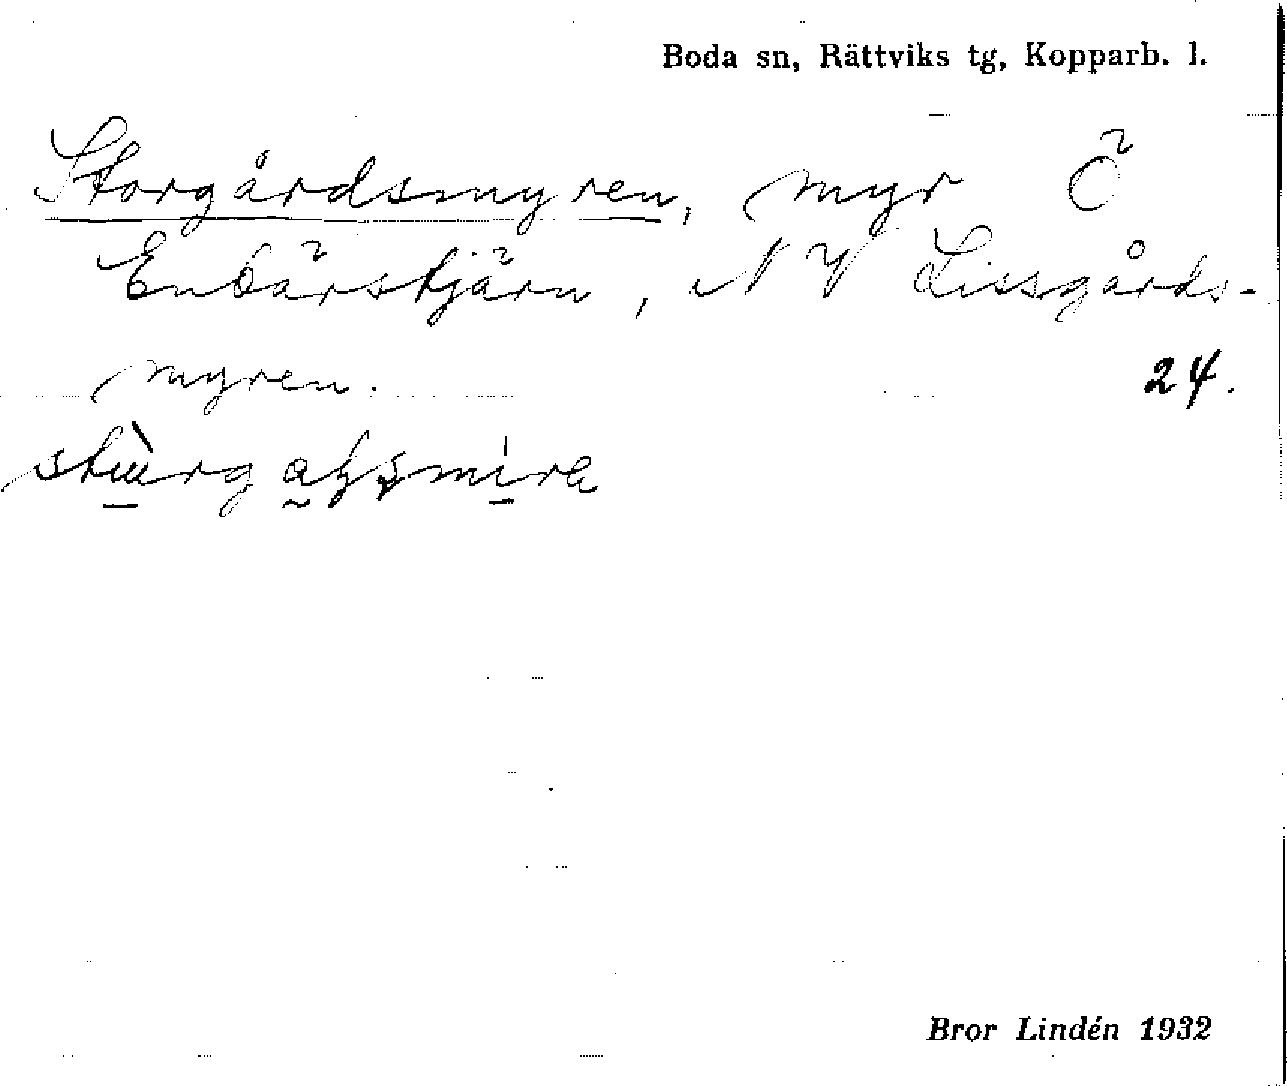 Boda sn, Rättviks tg, Kopparb. l.
Storgårdsmyren, myr Ö
Enbärstjärn, NV Lissgårds-
myren.
24.
Bror Lindén 1932